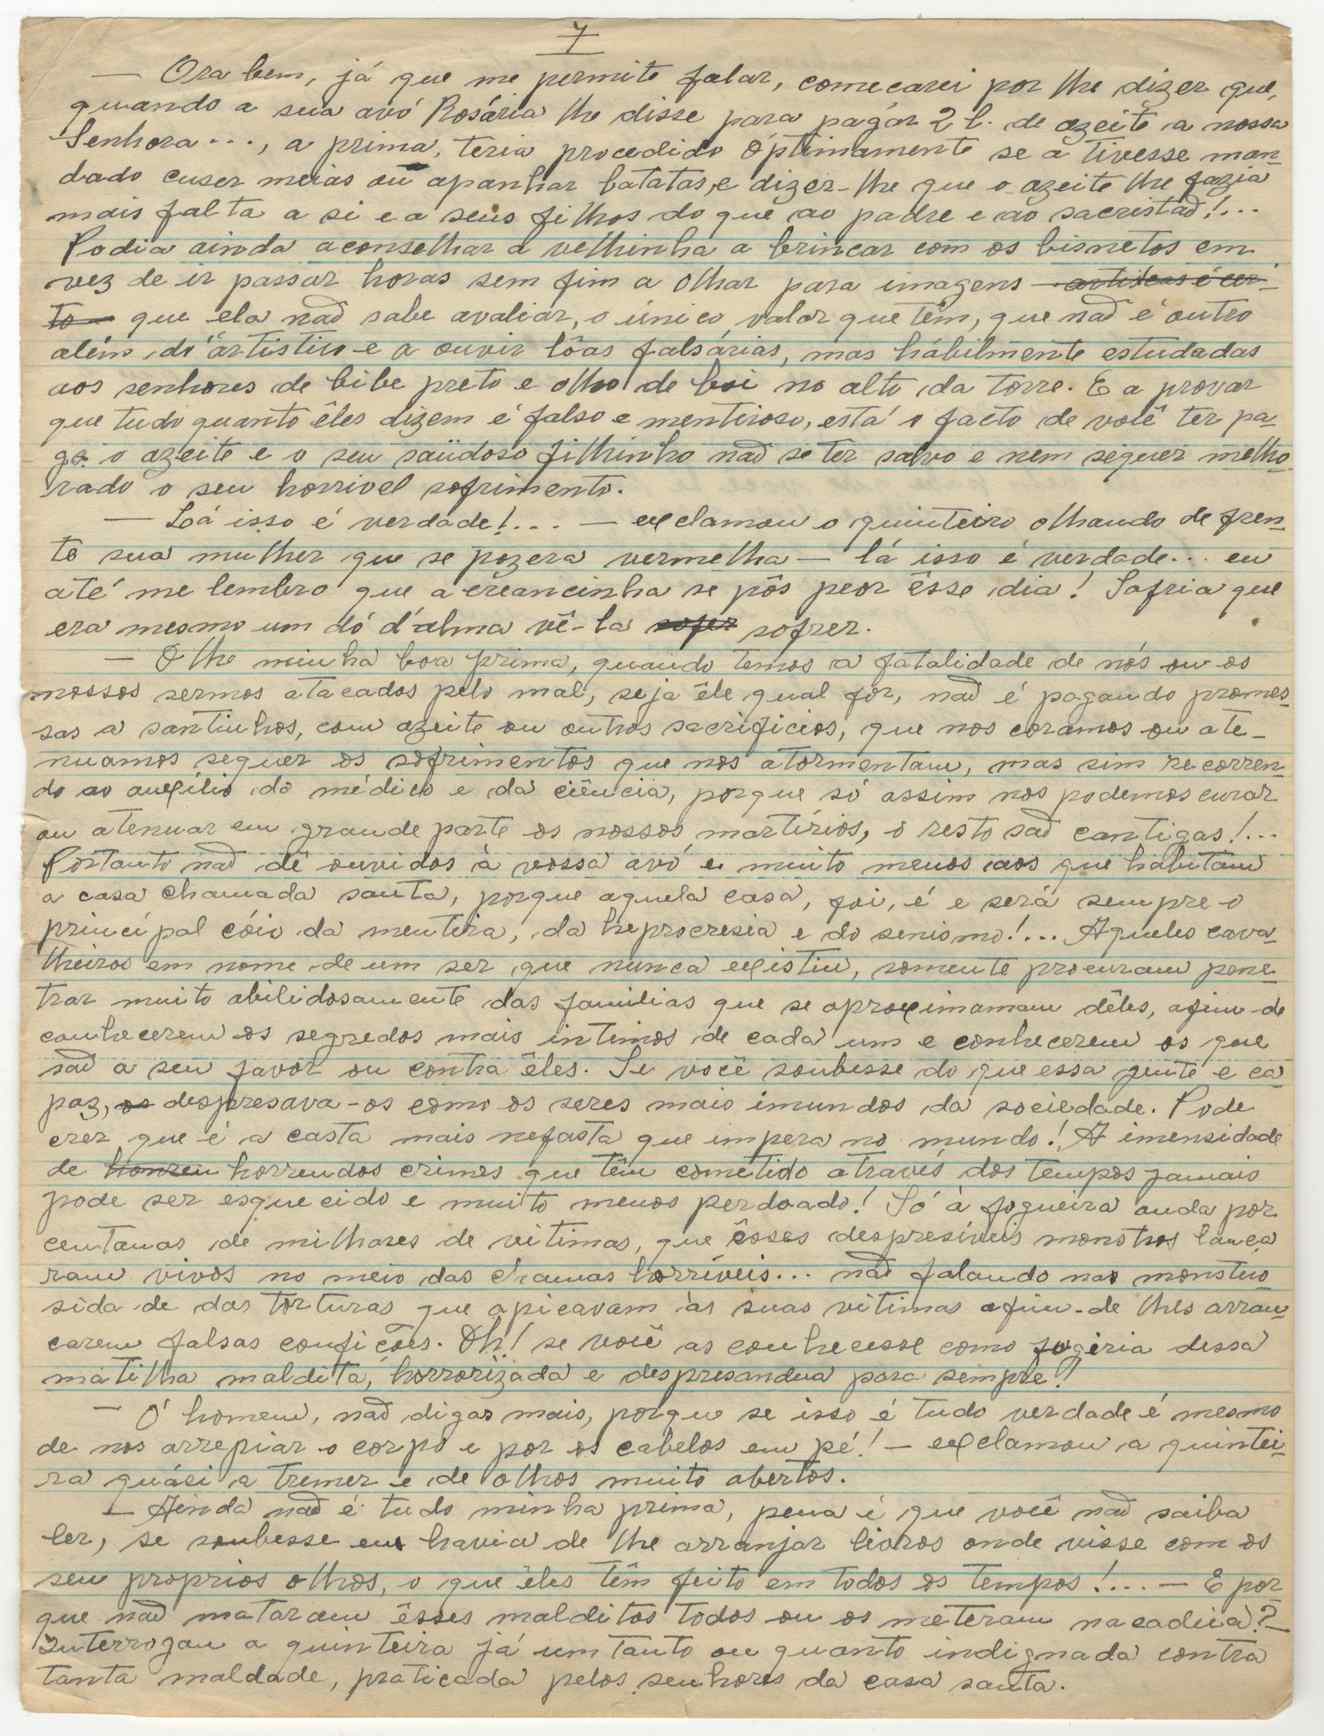 7
— Ora bem, já que me permite falar, comecarei por lhe dizer que,
quando a sua avó Rosária lhe disse para pagár 2 l. de azeite a nossa
Senhora..., a prima, teria procedido óptimamente se a tivesse man-
dado cuser meias ou apanhar batatas, e dizer-lhe que o azeite lhe fazia
mais falta a si e a seus filhos do que ao padre e ao sacristaõ!...
Podia ainda aconselhar a velhinha a brincar com os bisnetos em
vez de ir passar horas sem fim a olhar para imagens — artiticas é cer-
to — que ela naõ sabe avaliar, o único valor que têm, que naõ é outro
além do artistico e a ouvir lôas falsárias, mas hábilmente estudadas
aos senhores de bibe preto e olho de boi no alto da torre. E a provar
que tudo quanto êles dizem é falso e mentiroso, está o facto de você ter pa-
go o azeite e o seu saüdoso filhinho naõ se ter salvo e nem sequer melho-
rado o seu horrivel sofrimento.
— Lá isso é verdade!... — exclamou o quinteiro olhando de fren-
te sua mulher que se pozera vermelha — lá isso é verdade... eu
até me lembro que a creancinha se pôs peor êsse dia! Sofria que
era mesmo um dó d'alma vê-la sofer sofrer.
— Olhe minha boa prima, quando temos a fatalidade de nós ou os
nossos sermos atacados pelo mal, seja êle qual fôr, naõ é pagando promes-
sas a santinhos, com azeite ou outros sacrificios, que nos coramos ou ate-
nuamos sequer os sofrimentos que nos atormentam, mas sim recorren-
do ao auxílio do médico e da ciência, porque só assim nos podemos curar
ou atenuar em grande parte os nossos martírios, o resto saõ cantigas!...
Portanto naõ dê ouvidos à vossa avó e muito menos aos que habitam
a casa chamada santa, porque aquela casa, foi, é e será sempre o
principal cóio da mentira, da heprocresia e do senismo!... Aqueles cava-
lheiros em nome de um ser que nunca existiu, somente procuram pene-
trar muito abilidosamente das familias que se aproximamam dêles, afim-de
conhecerem os segredos mais intimos de cada um e conhecerem os que
saõ a seu favor ou contra êles. Se você soubesse do que essa gente e ca-
paz, os despresava-os como os seres mais imundos da sociedade. Pode
crer que é a casta mais nefasta que impera no mundo! A imensidade
de horren horrendos crimes que têm cometido através dos tempos jamais
pode ser esquecido e muito menos perdoado! Só à fogueira anda por
centanas de milhares de vitimas, que êsses despresíveis monstros lança
ram vivos no meio das chamas horríveis... naõ falando nas monstruo
sida de das torturas que apicavam às suas vitimas afim-de lhes arran-
carem falsas confições. Oh! se você as conhecesse como fugiria dessa
matilha maldita, horrorizada e despresandoa para sempre!
— Ó homem, naõ digas mais, porque se isso é tudo verdade é mesmo
de nos arrepiar o corpo e por os cabelos em pé! — exclamou a quintei-
ra quási a tremer e de olhos muito abertos.
— Ainda naõ é tudo minha prima, pena é que você naõ saiba
ler, se soubesse eu havia de lhe arranjar livros onde visse com os
seu proprios olhos, o que êles têm feito em todos os tempos!... — E por
que naõ mataram êsses malditos todos ou os meteram na cadeia? —
Interrogou a quinteira já um tanto ou quanto indignada contra
tanta maldade, praticada pelos senhores da casa santa.